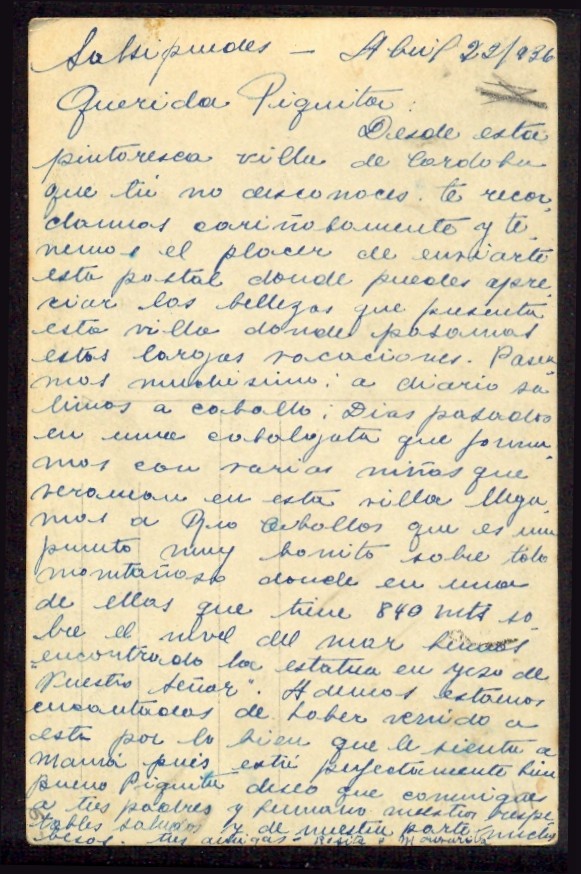 Salsipuedes - Abril 23/936
Querida Piquita:
Desde esta
pintoresca villa de Cordoba
que tú no desconoces. te recor
damos cariñosamente y te
nemos el placer de enviarte
esta postal donde puedes apre
ciar las bellezas que presenta
esta villa donde pasamos
estas largas vacaciones. Pasea
mos muchisimo; a diario sa
limos a caballo; Dias pasados
en una cabalgata que forma
mos con varias niñas que
veranean en esta villa llega
mos a Rio Ceballos que es un
punto muy bonito sobre todo
montañoso donde en una
de ellas que tiene 840 mts so
bre el nivel del mar hemos
encontrado la estatua en yeso de
"Nuestro Señor". Ademas estamos
encantadas de haber venido a
esta por lo bien que le sienta a
Mamá pues está perfectamente bien
bueno Piquita deseo que comuniques
a tus padres y hermano nuestros respe
tables saludos y de nuestra parte muchos
besos. tus amigas - Rosita y